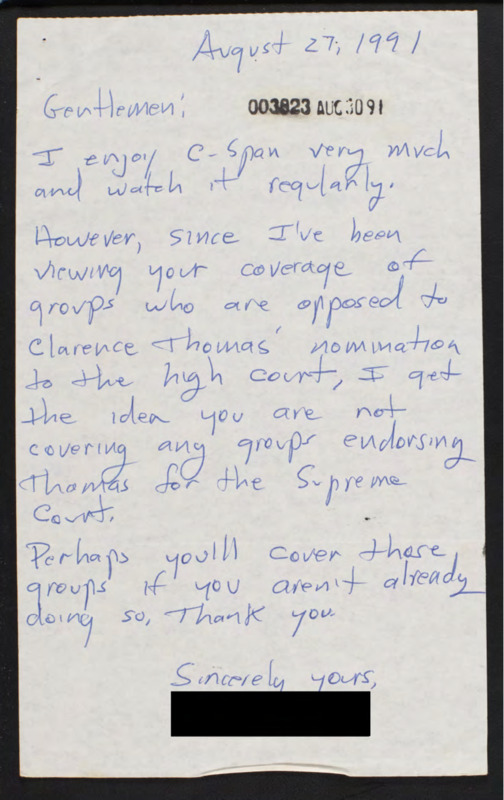 August 27, 1991
Gentlemen:
003823 AUG 30 91
I enjoy C-Span very much
and watch it regularly.
However, since I've been
viewing your coverage of
groups who are opposed to
Clarence Thomas' nomination
to the high court, I get
the idea you are not
covering any groups endorsing
Thomas for the Supreme
Court.
Perhaps you'll cover those
groups if you aren't already
doing so, Thank you.
Sincerely yours,